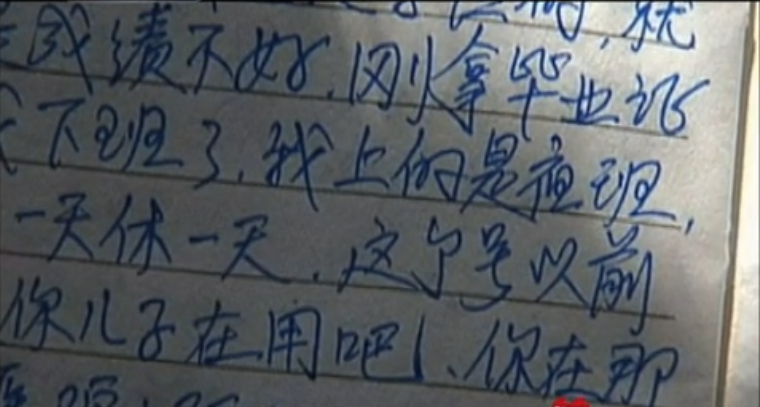 就
成绩不好.刚拿毕业证
下班了,我上的是夜班,
一天休一天.这个号以前
你儿子在用吧!、你在那